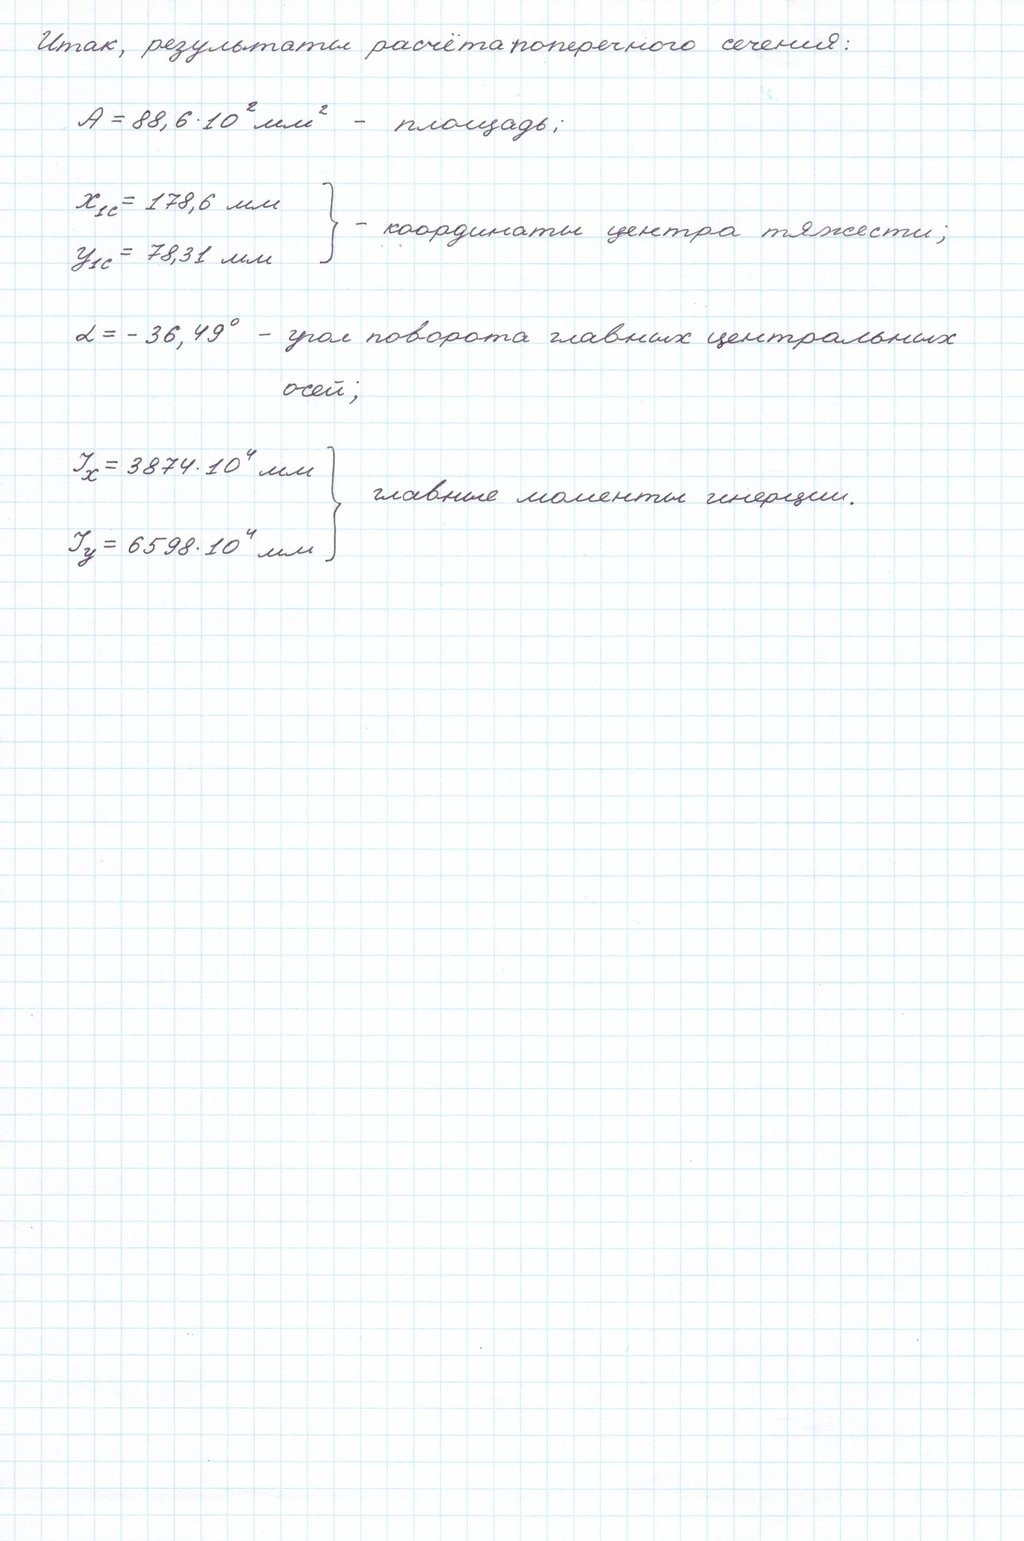 Итак, результаты расчёта поперечного сечения:
A = 88,6·10² мм² - площадь;
x₁c = 178,6 мм
y₁c = 78,31 мм
} - координаты центра тяжести;
α = - 36,49° - угол поворота главных центральных
осей;
Jx = 3874·10⁴ мм
Jy = 6598·10⁴ мм
} главные моменты инерции.